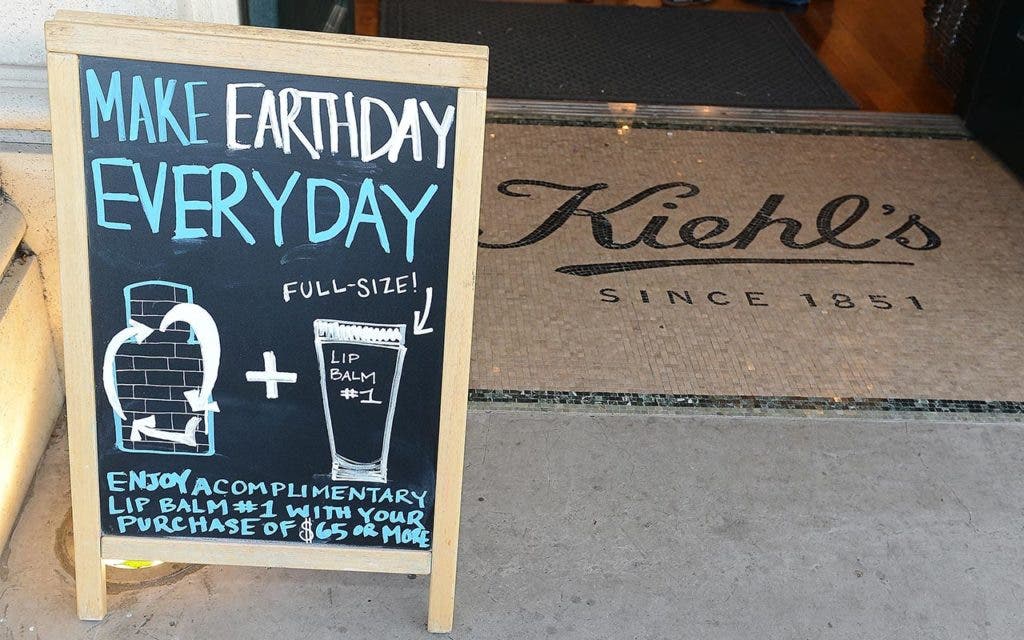 MAKE EARTHDAY
EVERYDAY
FULL-SIZE!
LIP
BALM
#1
ENJOY A COMPLIMENTARY
LIP BALM #1 WITH YOUR
PURCHASE OF $65 OR MORE
Kiehl's
SINCE 1851